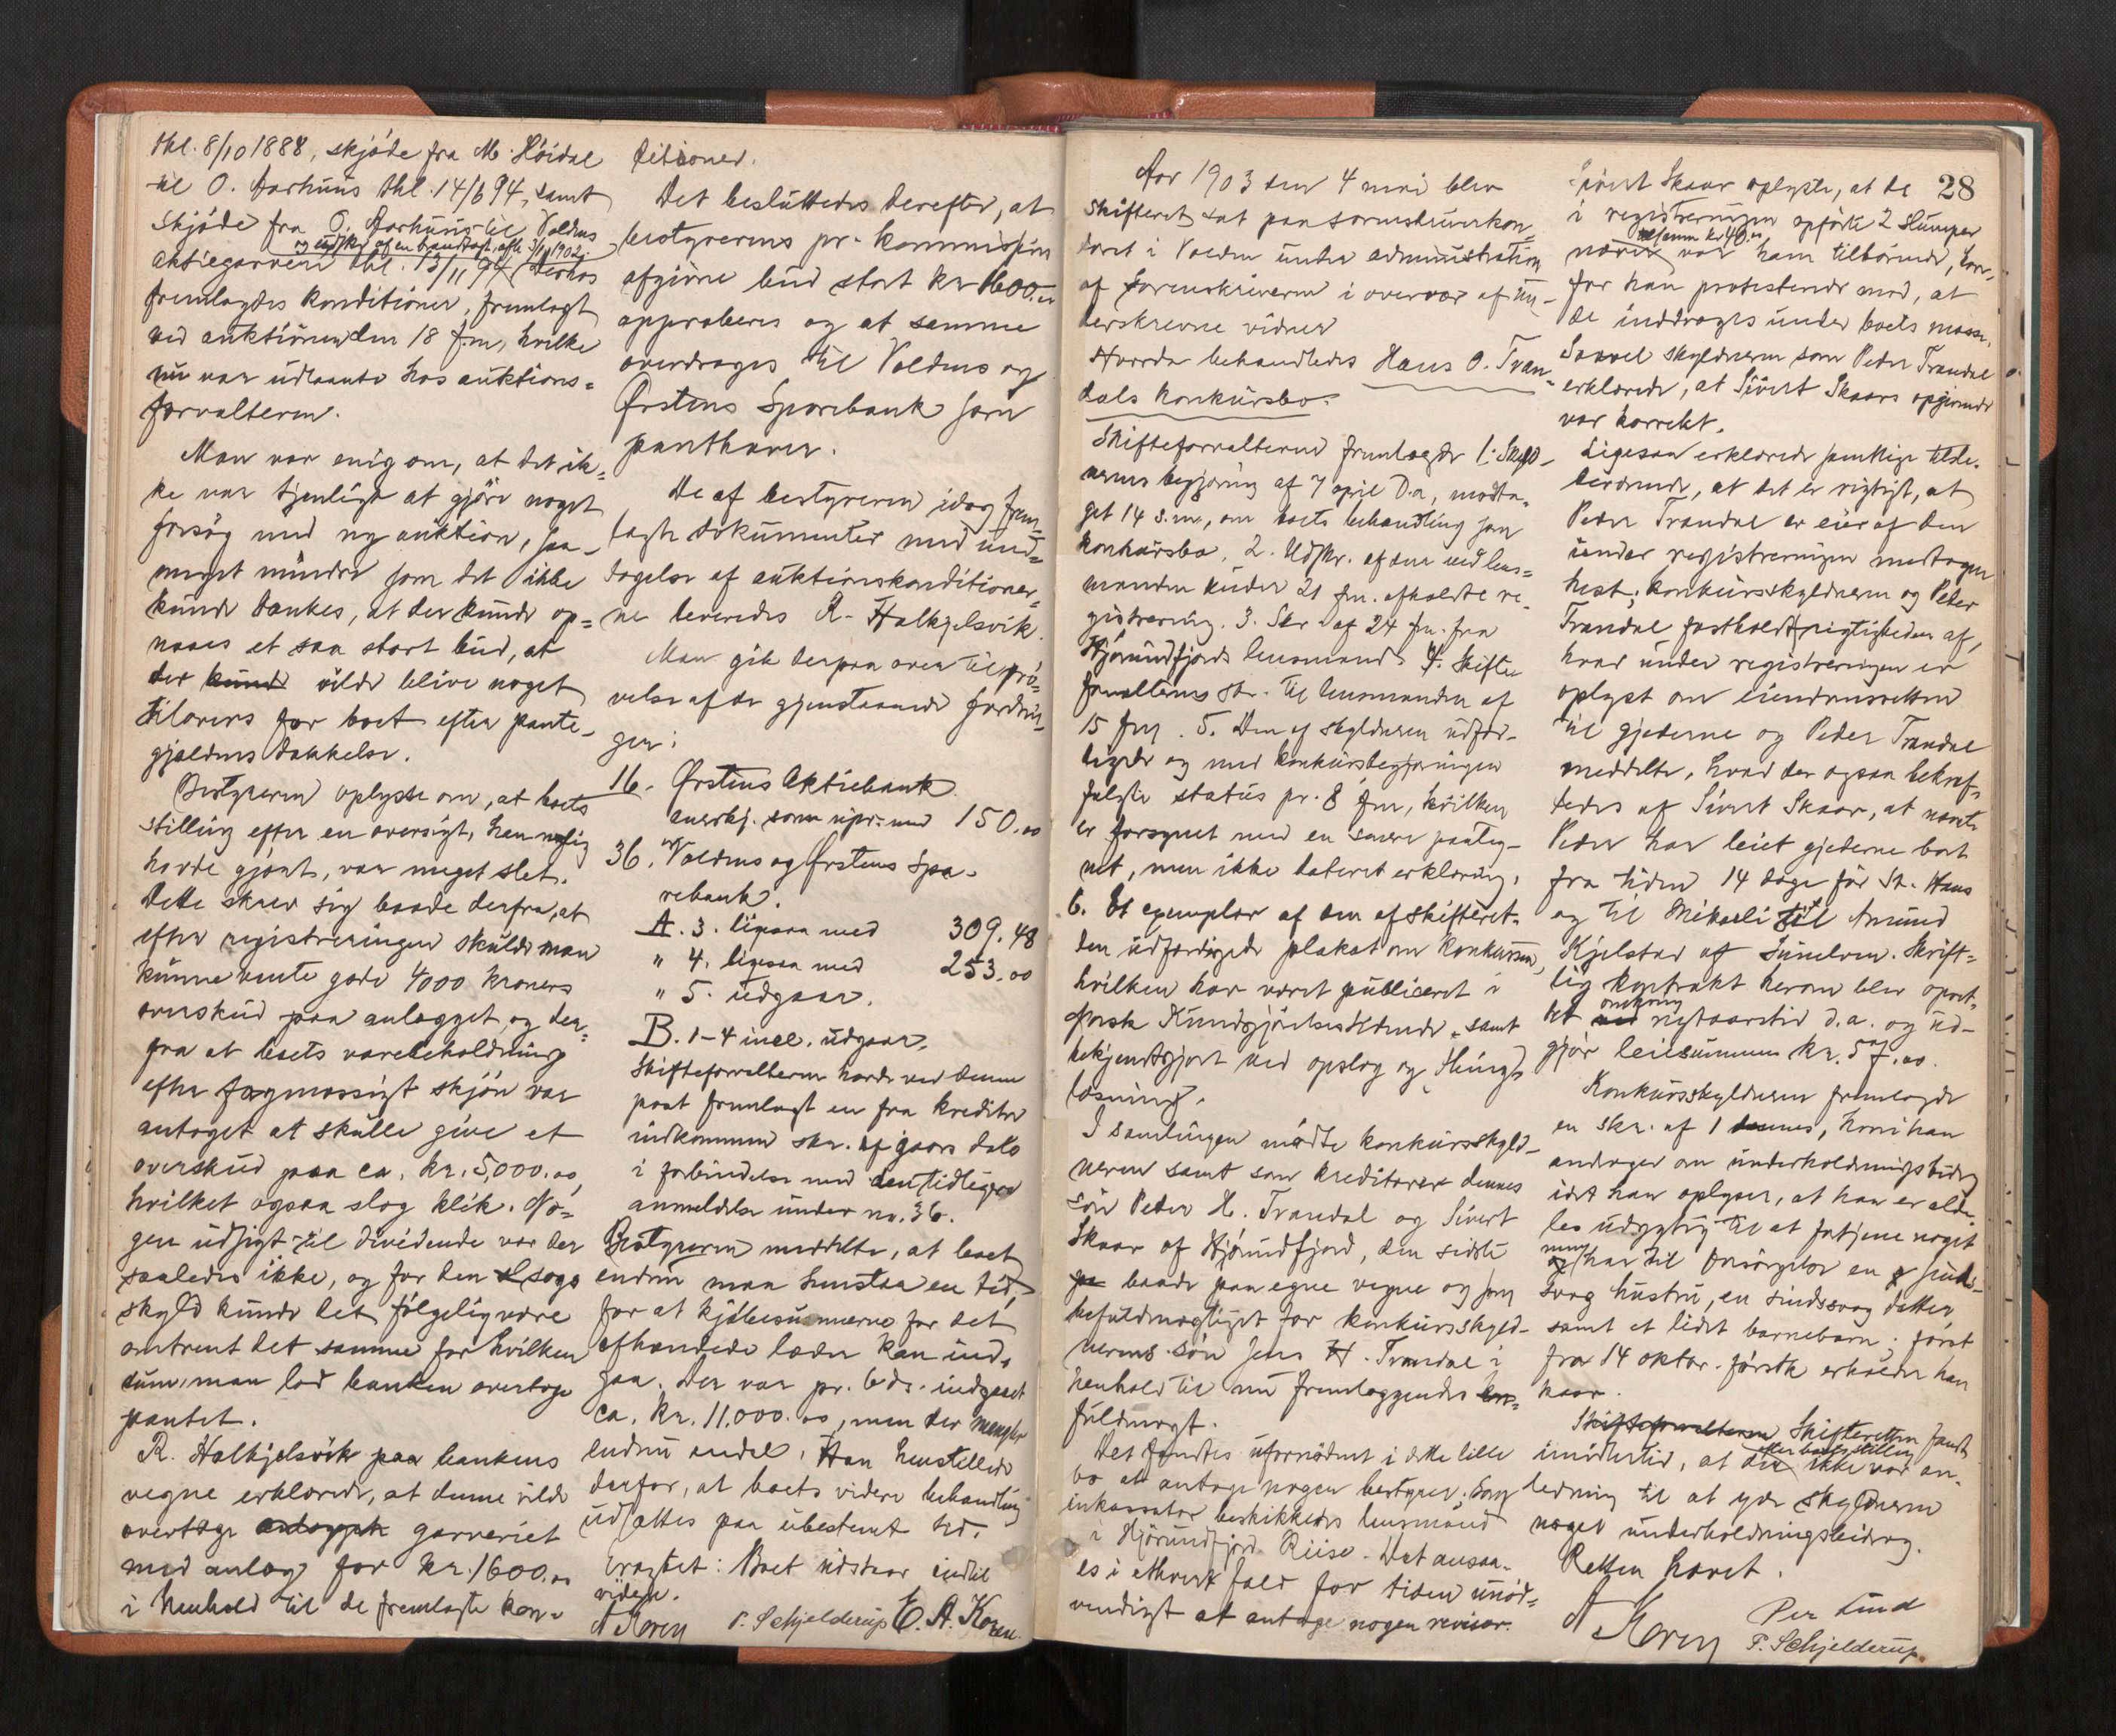 thl. 8/10 1888, skjøde fra M. Høidal
til O. Aarhuus thl. 14/6 94, samt
skjøde fra O. Aarhuus til Voldens
og udskr. af en brandtaxt, afh. 3/11 1902;
aktiegarveri thl. 13/11 97 (derhos
fremlagdes konditioner, fremlagt
ved auktionen den 18 f.m., hvilke
nu var udlaante hos auktions-
forvalteren.
Man var enig om, at det ik-
ke var tjenligt at gjøre noget
forsøg med ny auktion, saa-
meget mindre som det ikke
kunde tænkes, at der kunde op-
naaes et saa stort bud, at
der kunde vilde blive noget
tilovers for boet efter pante-
gjældens dækkelse.
Bestyreren oplyste om, at boets
stilling efter en oversigt, han nylig
havde gjort, var meget slet.
Dette skrev sig baade derfra, at
efter registreringen skulde man
kunne vente gode 4000 kroners
overskud paa anlægget, og der-
fra at boets varebeholdning
efter fagmæssigt skjøn var
antaget at skulle give et
overskud paa ca. kr. 5,000.00,
hvilket ogsaa slog klik. No-
gen udsigt til dividende var der
saaledes ikke, og for den sags
skyld kunde det følgelig være
omtrent det samme for hvilken
sum man lod banken overtage
pantet.
R. Halkjelsvik paa bankens
vegne erklærede, at denne vilde
overtage garveriet
med anlæg for kr. 1600.00
i henhold til de fremlagte kon-
ditioner.
Det besluttedes derefter, at
bestyrerens pr. kommission
afgivne bud stort kr 1600.00
approberes og at samme
overdrages til Voldens og
Ørstens Sparebank som
panthaver.
De af bestyreren idag frem-
lagte dokumenter med und-
tagelse af auktionskonditioner-
ne leveredes R. Halkjelsvik.
Man gik derpaa over til prø-
velse af de gjenstaaende fordrin-
ger:
16. Ørstens Aktiebank
anerkj. som upr. med 150.00
36. Voldens og Ørstens Spa-
rebank.
A. 3. ligesaa med 309.48
" 4. ligesaa med 253.00
" 5. udgaar.
B. 1-4 incl. udgaar.
Skifteforvalteren havde ved denne
post fremlagt en fra kreditor
indkommen skr. af gaars dato
i forbindelse med den tidligere
anmeldelse under no. 36.
Bestyreren meddelte, at boet
endnu maa henstaa en tid,
for at kjøbesummerne for det
afhændede læder kan ind-
gaa. Der var pr. 6 ds. indgaaet
ca. kr. 11.000.00, men der mangler
endnu endel. Han henstillede
derfor, at boets videre behandling
udsættes paa ubestemt tid.
Eragtet: Boet udstaar indtil
videre.
A Koren P. Schjelderup E. A. Koren.
28
Aar 1903 den 4 mai blev
skifteret sat paa sorenskriverkon-
toret i Volden under administration
af sorenskriveren i overvær af un-
derskrevne vidner
Hvorda behandledes Hans O. Tran-
dals konkursbo.
Skifteforvalteren fremlagde 1. Skyld-
nerens begjæring af 7 april d.a., modta-
get 14 s.m., om boets behandling som
konkursbo. 2. Udskr. af den ved lens-
manden under 21 f.m. afholdte re-
gistrering. 3. Skr. af 24 f.m. fra
Hjørundfjords lensmand. 4. Skifte
forvalterens skr. til lensmanden af
15 f.m. 5. Den af skyldneren udfær-
digede og med konkursbegjæringen
fulgte status pr. 8 f.m., hvilken
er forsynet med en senere paateg-
net, men ikke dateret erklæring.
6. Et exemplar af den af skifteret-
den udfærdigede plakat om konkursen,
hvilken har været publiceret i
Norsk Kundgjørelsestidende samt
bekjendtgjort ved opslag og thing-
læsning.
I samlingen mødte konkursskyld-
neren samt som kreditorer dennes
søn Peder H. Trandal og Sivert
Skaar af Hjørundfjord, den sidste
baade paa egne vegne og som
befuldmægtiget for konkursskyld-
nerens søn Jens H. Trandal i
henhold til nu fremlæggendes
fuldmagt.
Det fandtes ufornødent i dette lille
bo at antage nogen bestyrer; som
inkassator beskikkedes lensmand
i Hjørundfjord Riise. Det ansaa-
es i ethvert fald for tiden unød-
vendigt at antage nogen revisor.
Sivert Skaar oplyste, at de
i registreringen opførte 2 slumper
tilsammen kr 40.00
næver var ham tilhørende, hvor-
for han protesterede mod, at
de inddrages under boets masse.
Saavel skyldneren som Peder Trandal
erklærede, at Sivert Skaars opgivende
var korrekt.
Ligesaa erklærede samtlige tilste-
deværende, at det er rigtigt, at
Peder Trandal er eier af den
under registreringen medtagne
hest; konkursskyldneren og Peder
Trandal fastholdt rigtigheden af,
hvad under registreringen er
oplyst om eiendomsretten
til gjederne og Peder Trandal
meddelte, hvad der ogsaa bekræf-
tedes af Sivert Skaar, at nævnte
Peder har leiet gjederne bort
fra tiden 14 dage før St. Hans
og til Mikaeli til Amund
Kjelstad af Sunelven. Skrift-
lig kontrakt herom blev opret-
tet omkring nytaarstid d.a. og ud-
gjør leiesummen kr. 57.00.
Konkursskyldneren fremlagde
en skr. af 1 dennes, hvori han
andrager om underholdningsbidrag
idet han oplyser, at han er alde-
les udygtig til at fortjene noget
men har til forsørgelse en sinds-
svag hustru, en sindssvag datter
samt et lidet barnebarn; først
fra 14 oktbr. førstk. erholder han
kaar.
Skifteforvalteren Skifteretten fandt
imidlertid, at der efter boets stilling ikke var an-
ledning til at yde skyldneren
noget underholdningsbidrag.
Retten hævet.
A Koren Per Lind
P. Schjelderup.